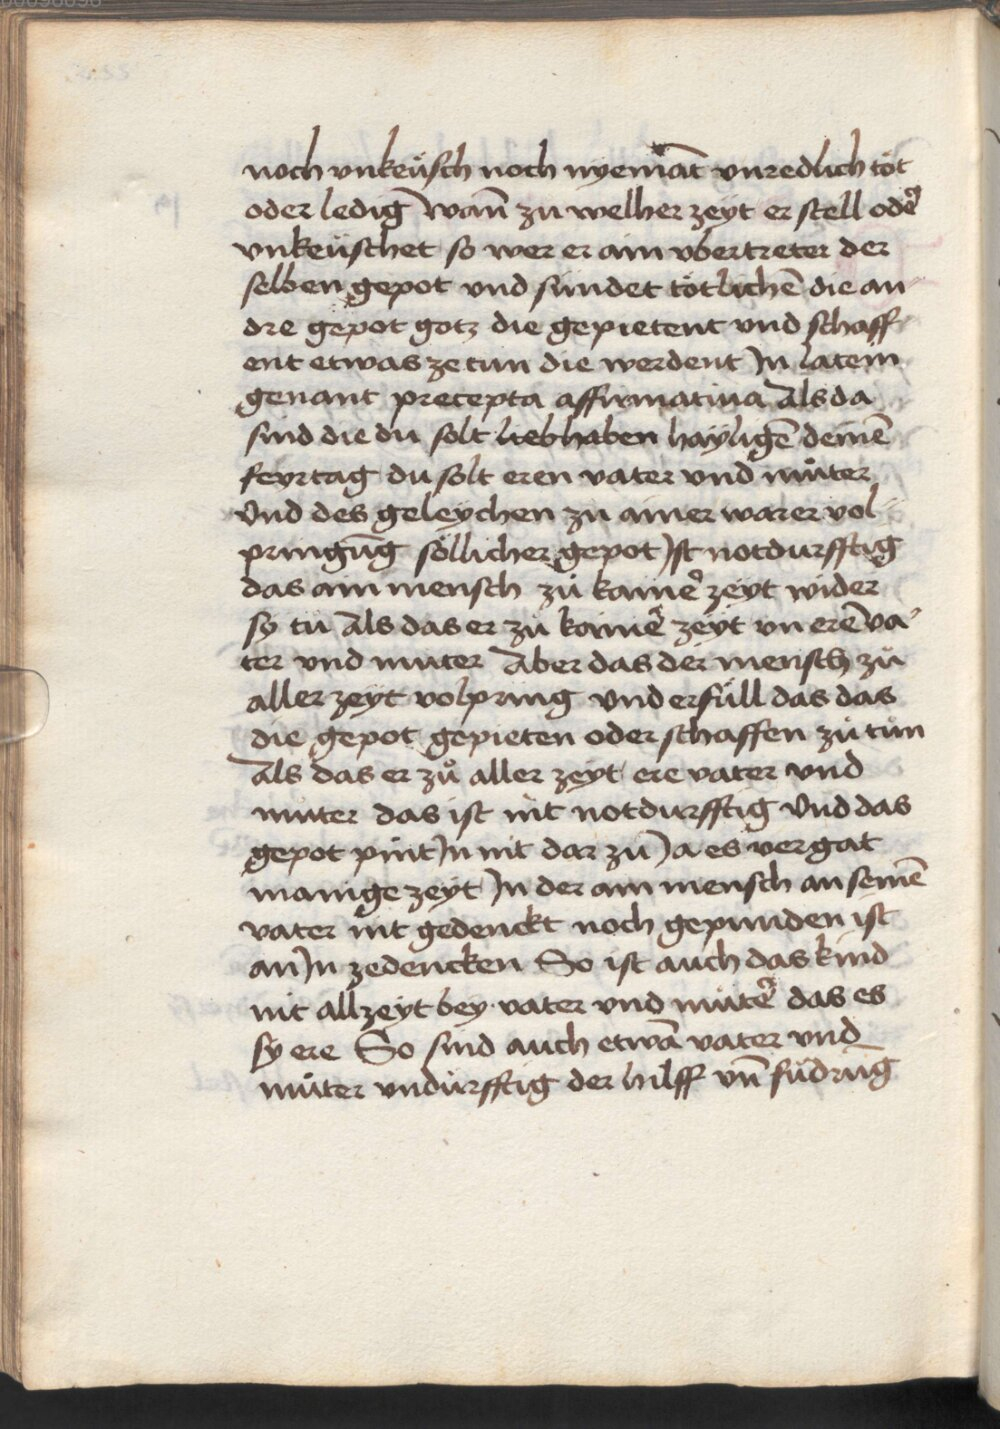 noch vnkeüsch noch nyemāt vnredlich töt
oder lediḡ Wan̄ zu welher zeyt er stell odē
vnkeüschet so wer er ain vbertreter der
selben gepot vnd sündet tötlichē die an
dre gepot gotz die gepietent vnd schaff
ent etwas ze tun die werdent Jn latein
genant precepta affirmatiua Als da
sind die du solt liebhaben hayligē deinē
feyrtag du solt eren vater vnd müter
Vnd des geleychen zu ainer warer vol
pringūg söllicher gepot Jst notdurfftig
das ain mensch zů kainē zeyt wider
sy tů Als das er zů kainē zeyt vn erē va
ter vnd muter Aber das der mensch zů
aller zeyt volpring vnd erfüll das das
die gepot gepieten oder schaffen zů tůn
Als das er zů aller zeyt ere vater vnd
muter das ist nit notdurfftig Vnd das
gepot pint Jn nit dar zů Ja es vergat
manige zeyt Jn der ain mensch an seinē
vater nit gedenckt noch gepunden ist
an Jn zedencken So ist auch das kind
nit allzeyt bey vater vnd mutē das es
sy ere So sind auch etwā vater vnd
můter vndürfftig der hilff vn̄ fůdrūg